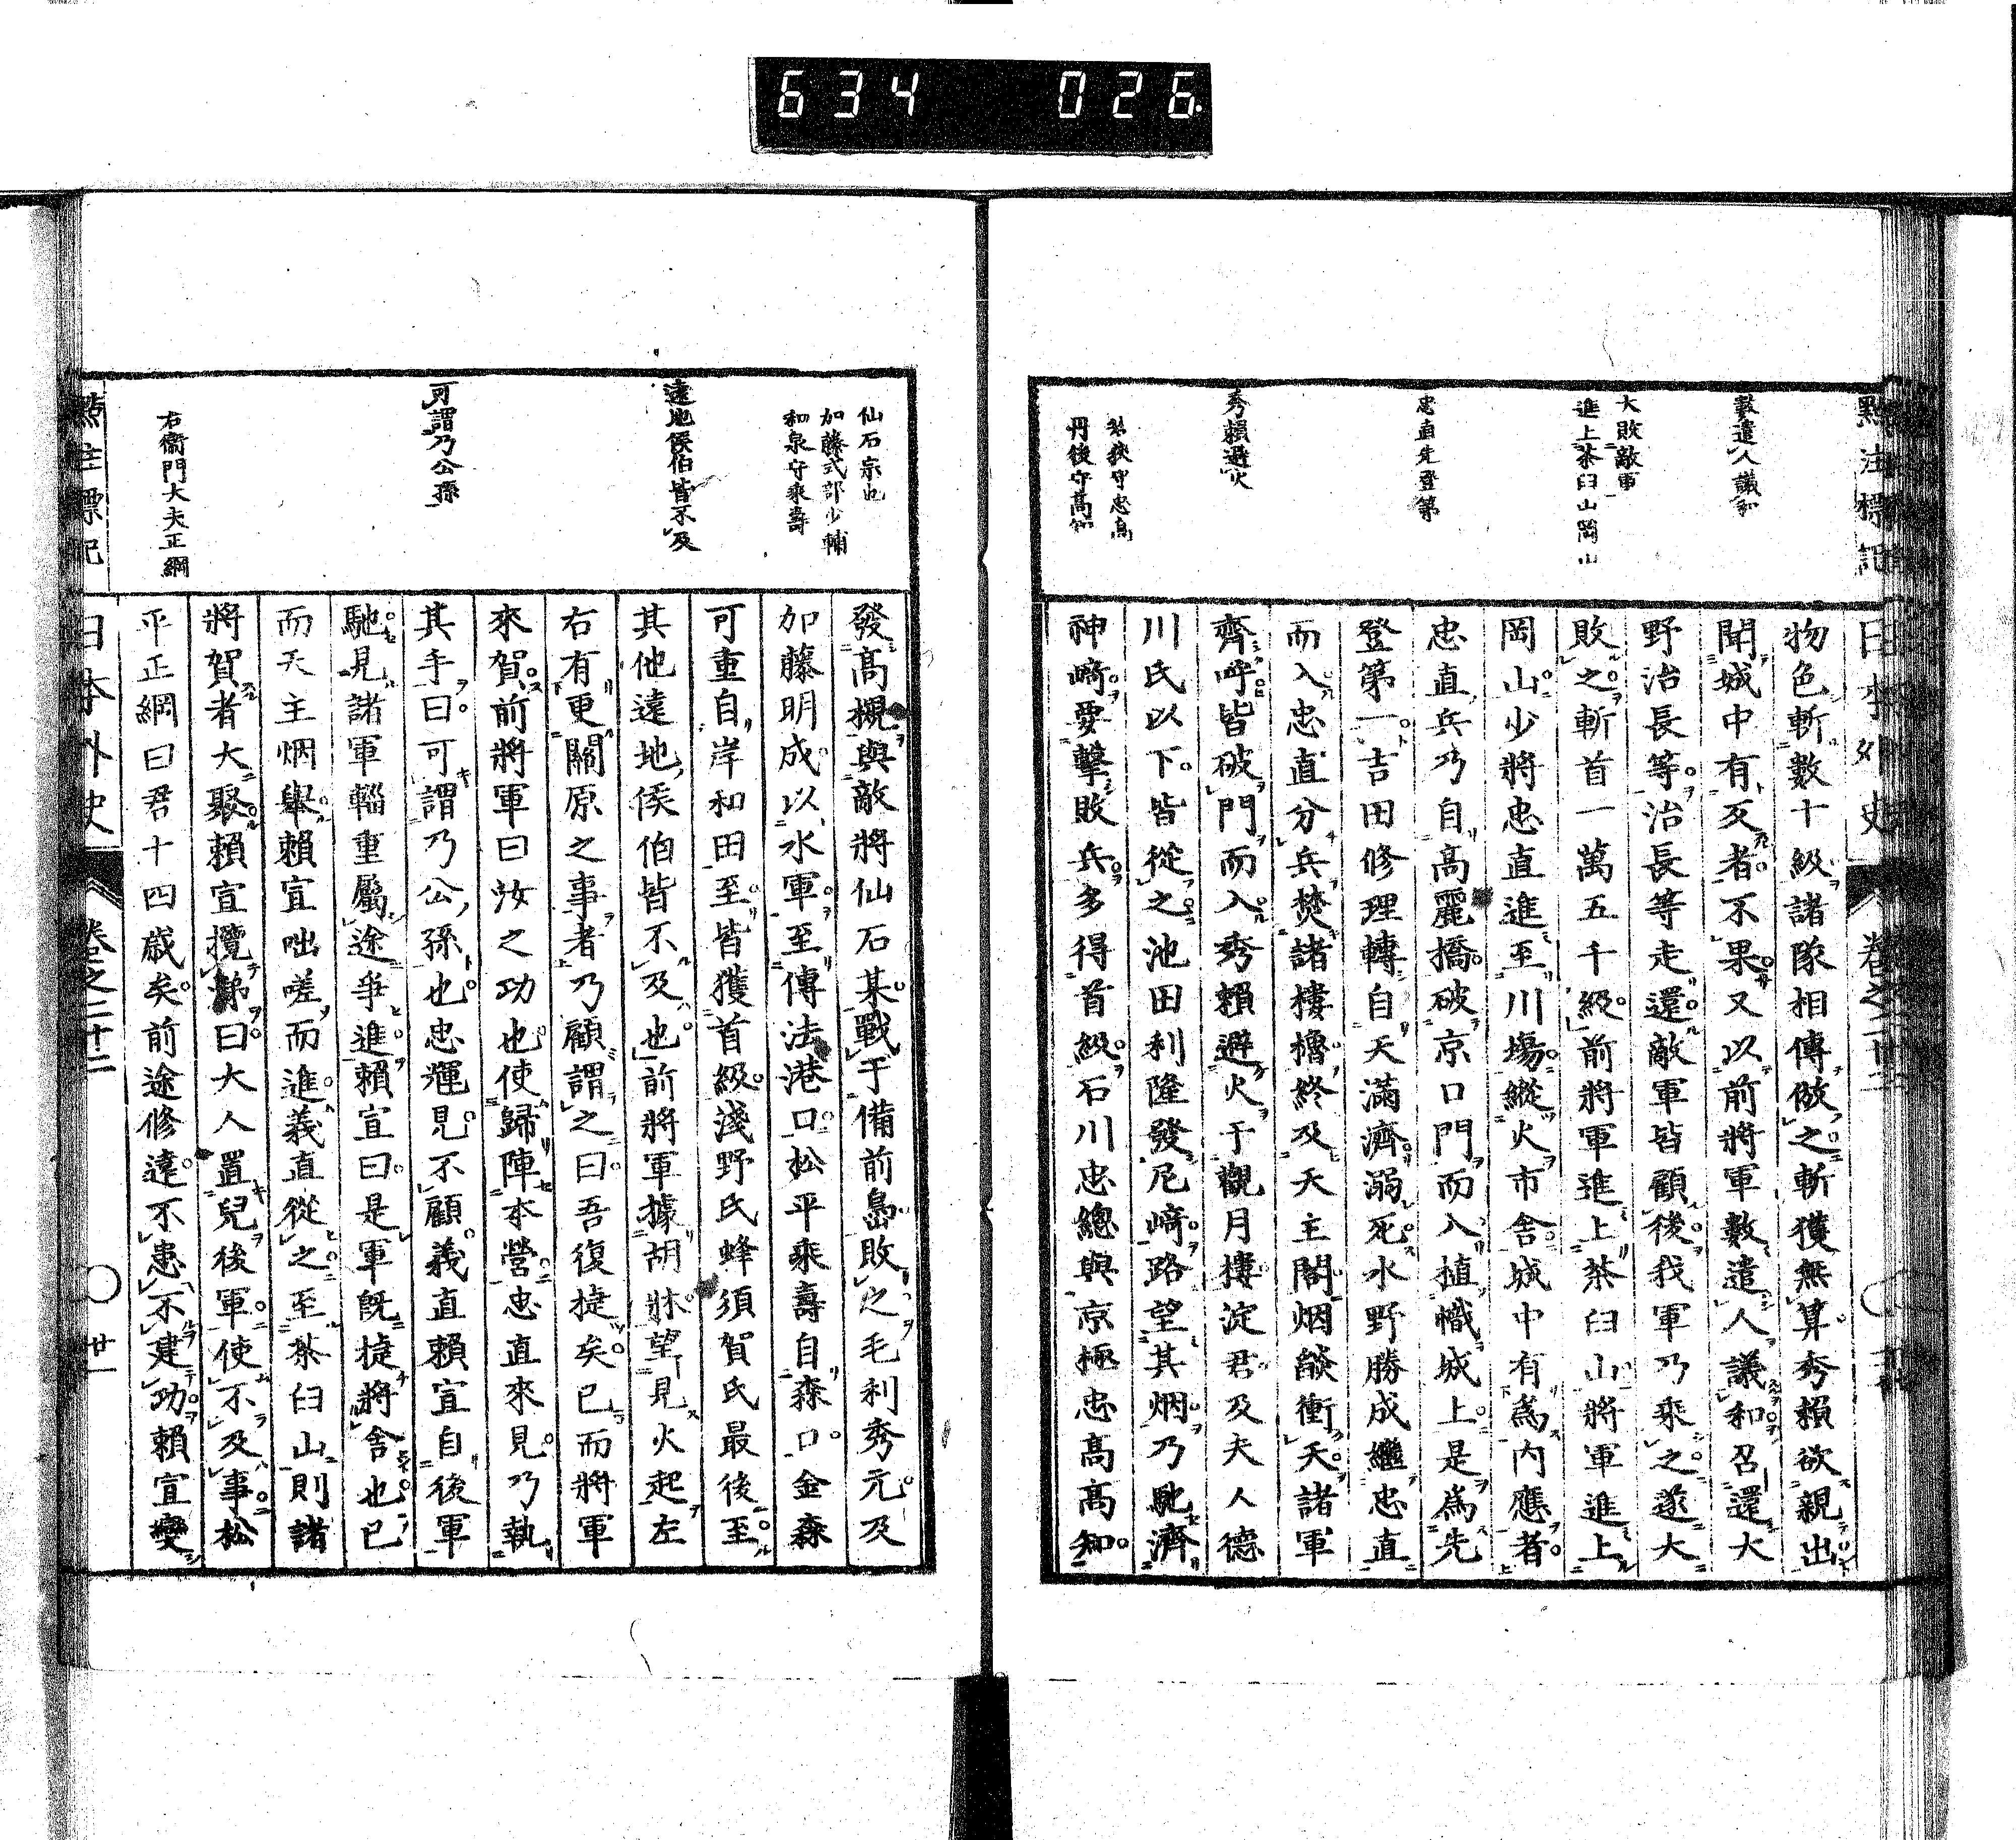 634 026
點注標記
日本外史 卷之二十二
數遣人議和
大敗敵軍
進上茶臼山岡山
忠直先登第
秀賴避火
若狹守忠高
丹後守高知
物色斬數十級諸隊相傳倣之斬獲無算秀賴欲親出
聞城中有反者不果又以前將軍數遣人議和召還大
野治長等治長等走還敵軍皆顧後我軍乃乘之遂大
敗之斬首一萬五千級前將軍進上茶臼山將軍進上
岡山少將忠直進至川場縱火市舍城中有爲內應者
忠直兵乃自高麗橋破京口門而入植幟城上是爲先
登第一吉田修理轉自天滿濟溺死水野勝成繼忠直
而入忠直分兵焚諸樓櫓終及天主閣烟燄衝天諸軍
齊呼皆破門而入秀賴避火于觀月樓淀君及夫人德
川氏以下皆從之池田利隆發尼崎路望其烟乃馳濟
神崎要擊敗兵多得首級石川忠總與京極忠高高知
仙石宗也
加藤式部少輔
和泉守乘壽
遠地侯伯皆不及
可謂乃公孫
右衞門大夫正綱
發高槻與敵將仙石某戰于備前島敗之毛利秀元及
加藤明成以水軍至傳法港口松平乘壽自森口金森
可重自岸和田至皆獲首級淺野氏蜂須賀氏最後至
其他遠地侯伯皆不及也前將軍據胡牀望見火起左
右有更關原之事者乃顧謂之曰吾復捷矣已而將軍
來賀前將軍曰汝之功也使歸陣本營忠直來見乃執
其手曰可謂乃公孫也忠輝見不顧義直賴宣自後軍
馳見諸軍輜重屬途爭進賴宣曰是軍既捷將舍也已
而天主烟舉賴宣咄嗟而進義直從之至茶臼山則諸
將賀者大聚賴宣攬涕曰大人置兒後軍使不及事松
平正綱曰君十四歲矣前途修遠不患不建功賴宣變
點注標記
日本外史 卷之二十二 廿一